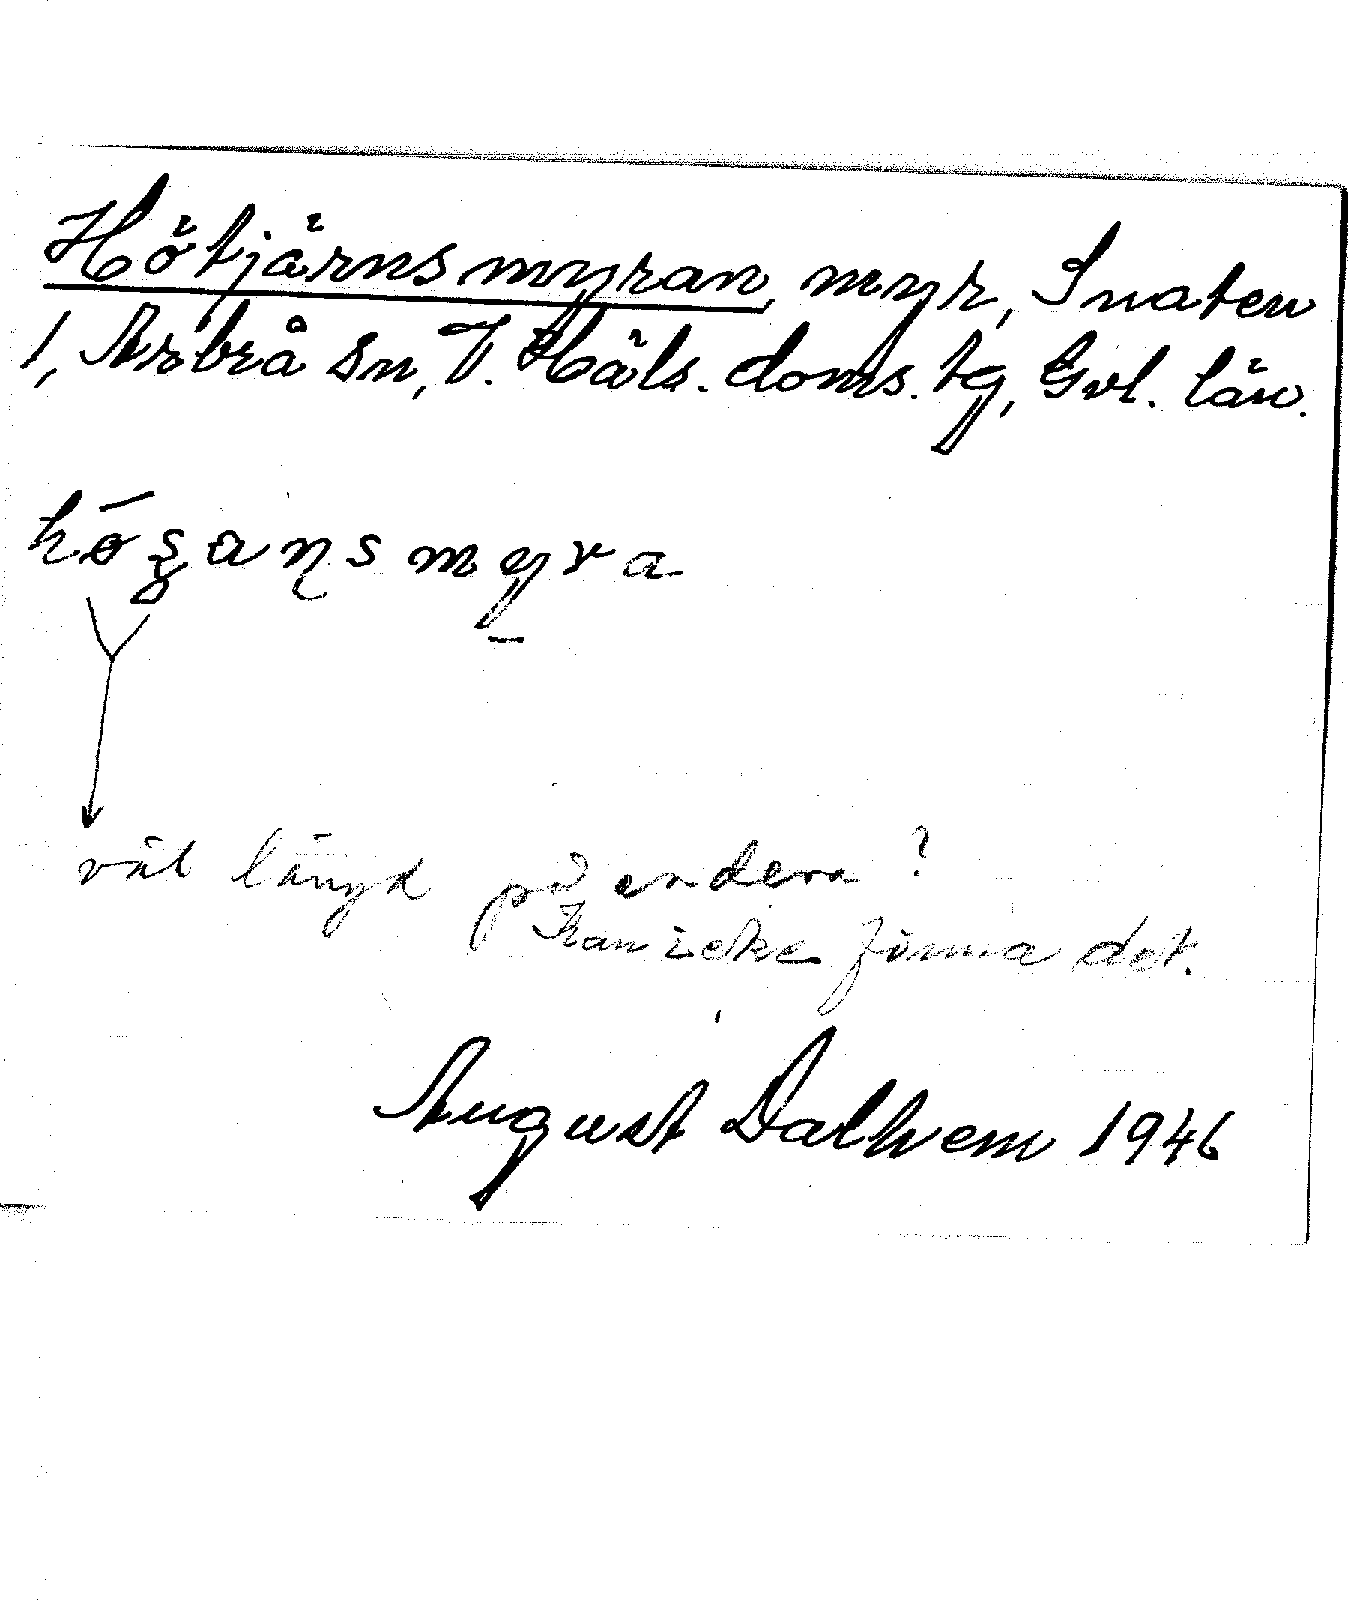 Hötjärnsmyran, myr, Inaten
1, Arbrå sn, V. Häls. doms. tg, Gvl. län.
väl längd på endera?
Kan icke finna det.
August Dalhvem 1946